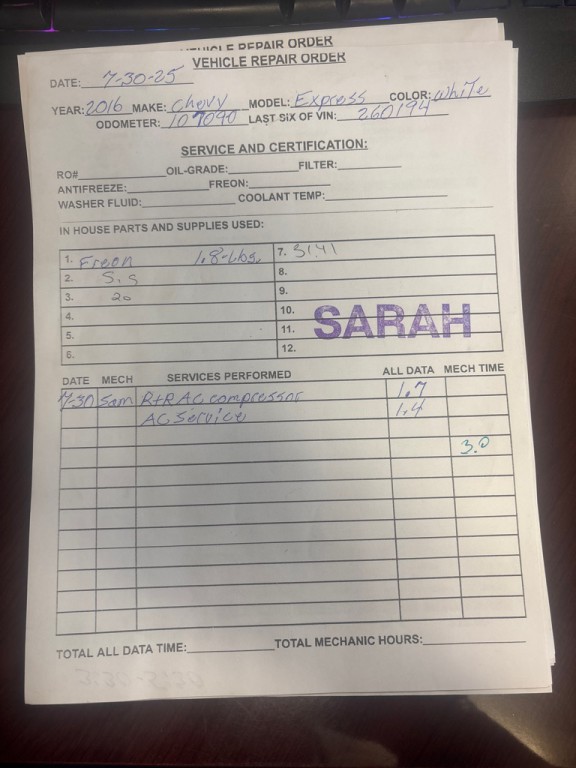 VEHICLE REPAIR ORDER
VEHICLE REPAIR ORDER
DATE: 7-30-25
YEAR: 2016 MAKE: Chevy MODEL: Express COLOR: White
ODOMETER: 107090 LAST SIX OF VIN: 260194
SERVICE AND CERTIFICATION:
RO# OIL-GRADE: FILTER:
ANTIFREEZE: FREON:
WASHER FLUID: COOLANT TEMP:
IN HOUSE PARTS AND SUPPLIES USED:
1. Freon 1.8-Lbs. 7. 31.41
2. S.S 8.
3. 20 9.
4. 10.
5. 11. SARAH
6. 12.
DATE MECH SERVICES PERFORMED ALL DATA MECH TIME
7-30 Sam R+R AC compressor 1.7
AC Service 1.4
3.0
TOTAL ALL DATA TIME: TOTAL MECHANIC HOURS: